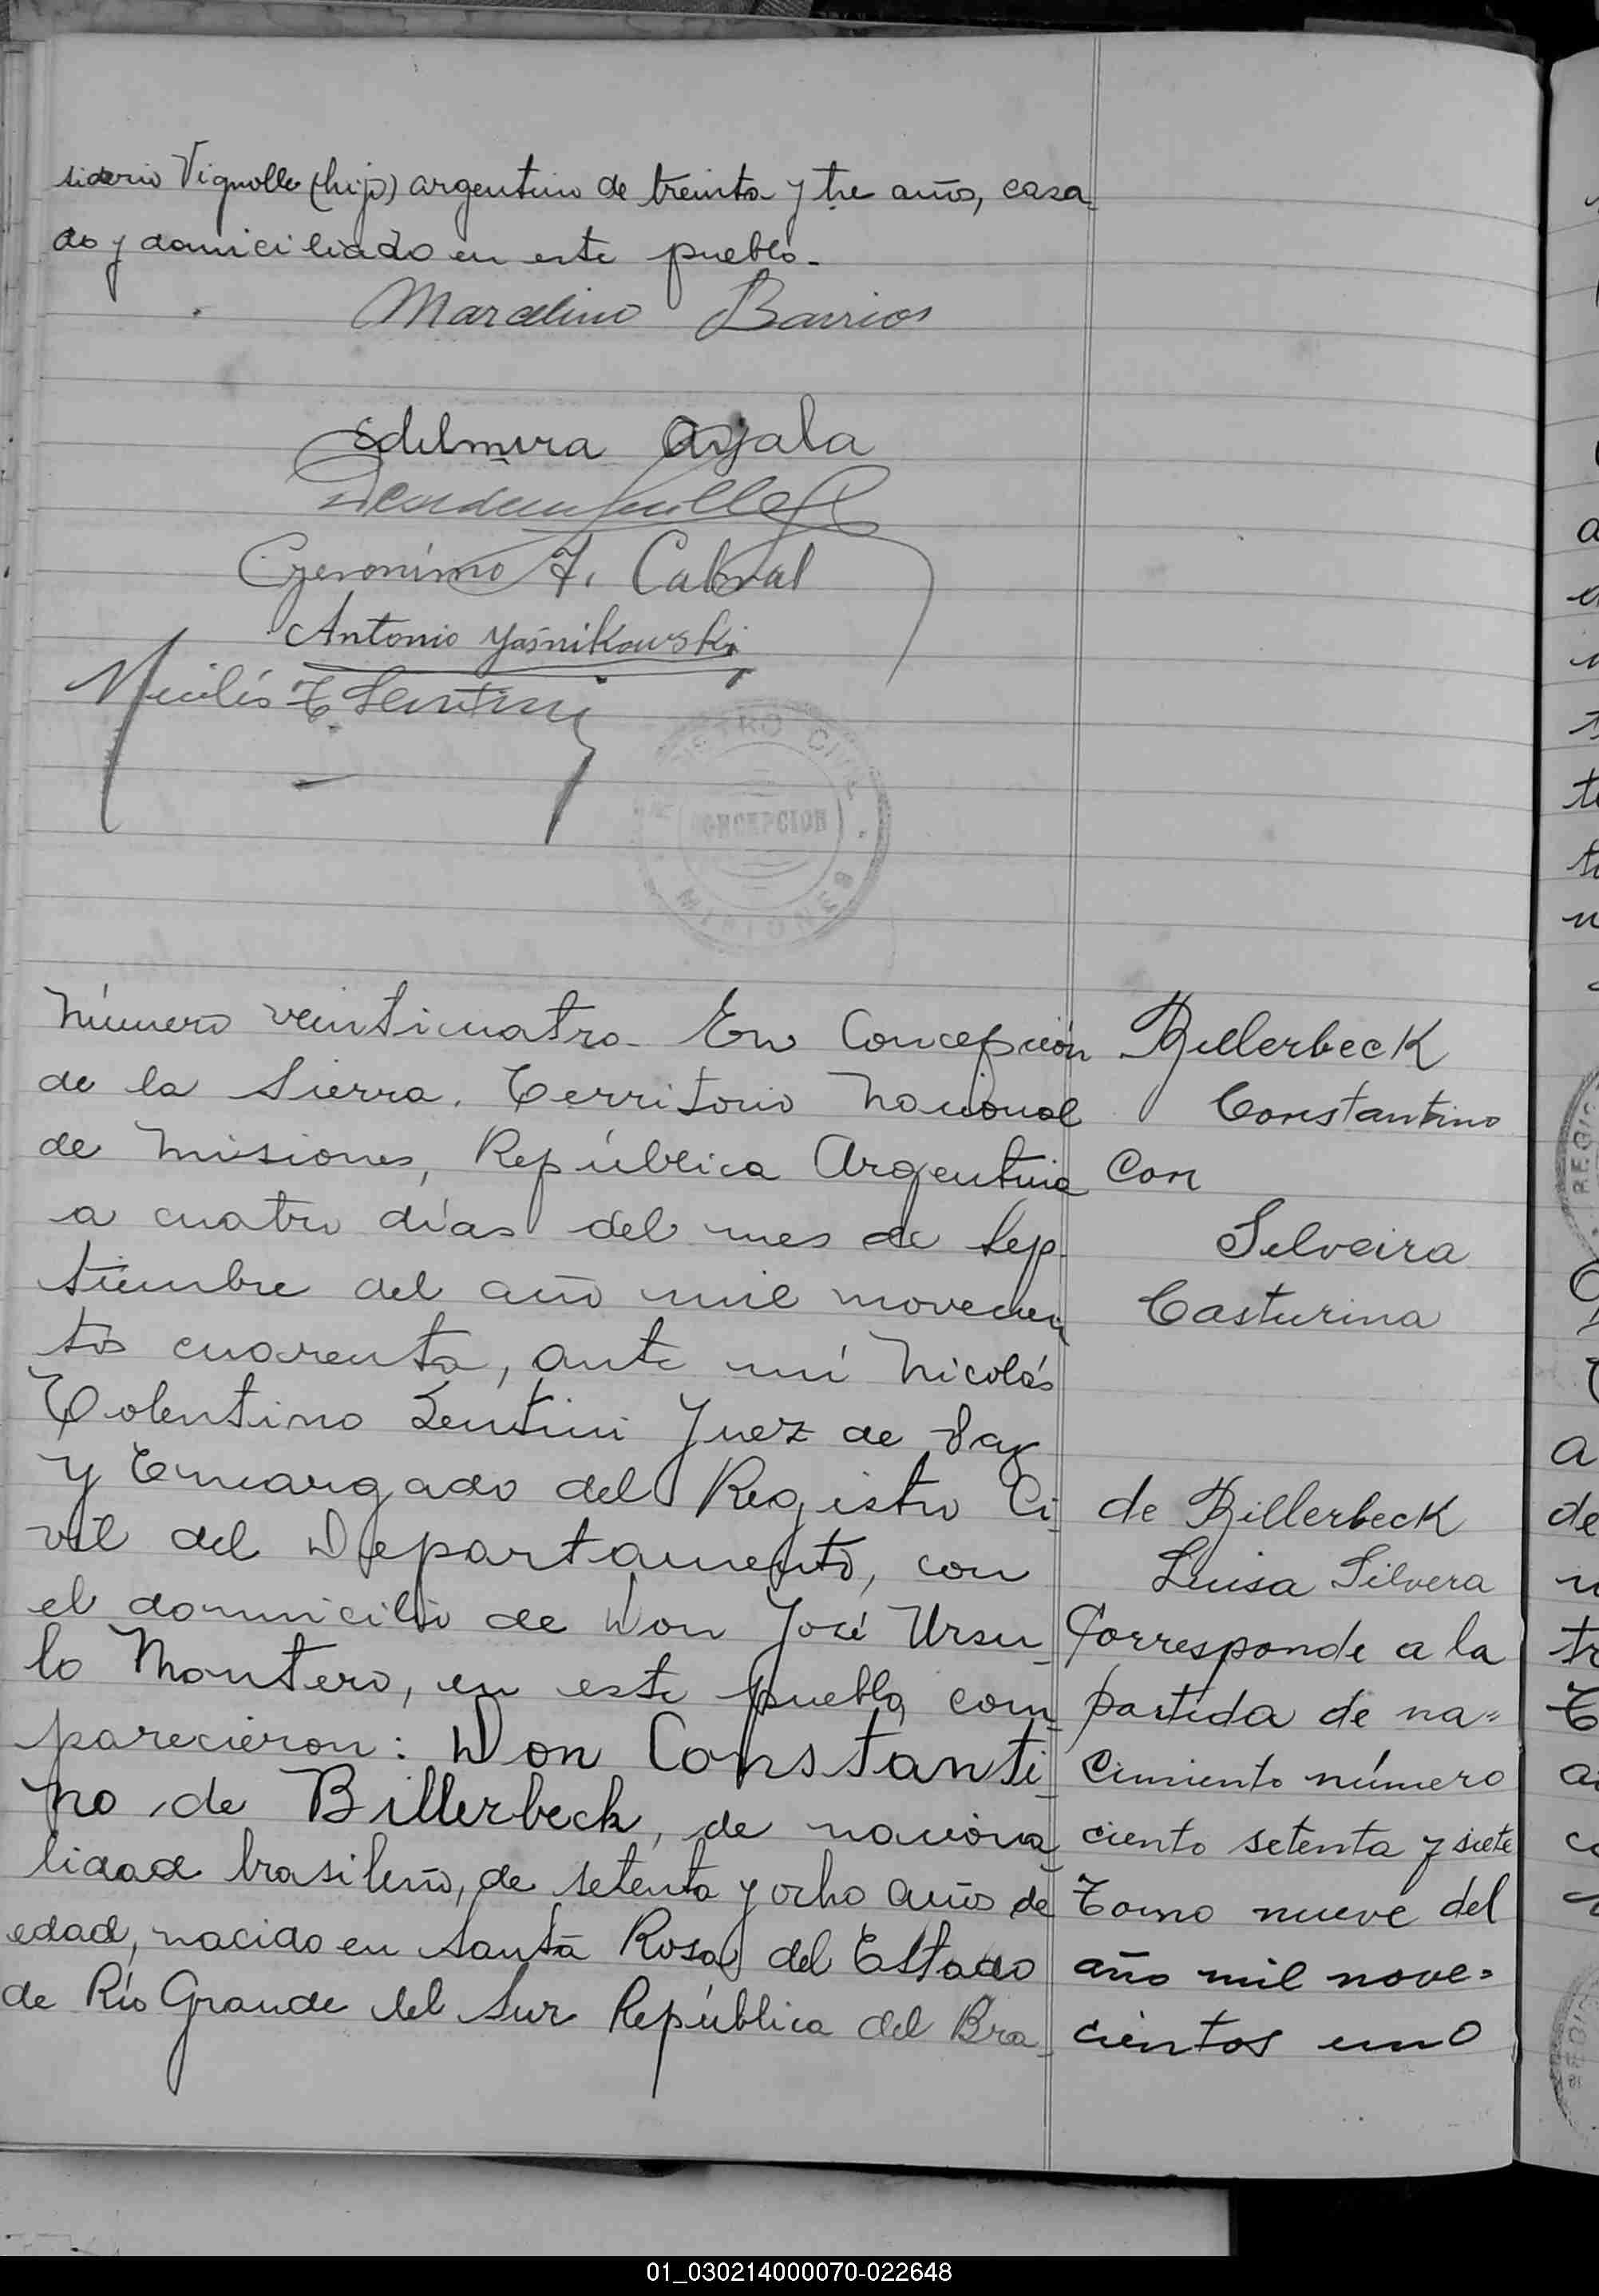 siderio Vignolles (hijo) argentino de treinta y tre años, casa-
do y domiciliado en este pueblo.-
Marcelino Barrios
Edelmira Ayala
Geronimo F. Cabral
Antonio Yasnikowski
Nicolás T. Sentini
REGISTRO CIVIL
CONCEPCION
MISIONES
Número veinticuatro- En Concepción
de la Sierra, Territorio Nacional
de Misiones, República Argentina
a cuatro días del mes de Sep-
tiembre del año mil novecien
tos cuarenta, ante mí Nicolás
Tolentino Sentini Juez de Paz
y Encargado del Registro Ci-
vil del Departamento, con
el domicilio de Don José Ursu-
lo Montero, en este pueblo, com-
parecieron: Don Constanti-
no de Billerbeck, de naciona-
lidad brasileño, de setenta y ocho años de
edad, nacido en Santa Rosa del Estado
de Río Grande del Sur República del Bra-
Billerbeck
Constantino
con
Silveira
Casturina
de Billerbeck
Luisa Silvera
Corresponde a la
partida de na=
cimiento número
ciento setenta y siete
Tomo nueve del
año mil nove=
cientos uno
01_030214000070-022648